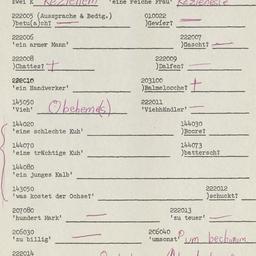 zwei K Keziehem 'eine reiche Frau' Kezieneste
222005 (Aussprache & Bedtg.) 010022
)betu(a)ch? — )Gevier? —
222006 222007
'ein armer Mann' )Gascht? —
222008 222009
)Chattes? + )Dalfen? —
222010 203100
'ein Handwerker' )Balmelocche? +
145050 222011
'Vieh' Obehemo(s) 'Viehhändler' —
144020 144030
'eine schlechte Kuh' )Boore?
144070 144073
'eine trächtige Kuh' )battersch?
144080
'ein junges Kalb'
143050 222012
'was kostet der Ochse?' )schuckt?
207080 222013
'hundert Mark' — 'zu teuer' —
206030 206040
'zu billig' — 'umsonst' um bechinum
222014